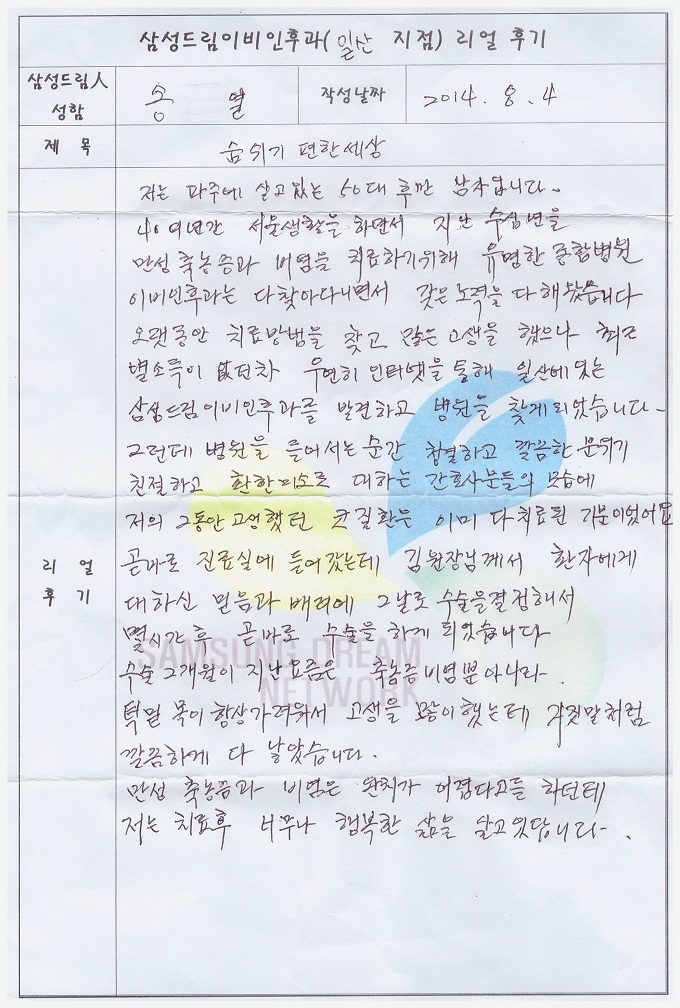 삼성드림이비인후과(일산 지점) 리얼 후기
삼성드림人 성함
송 열
작성날짜
2014. 8. 4
제 목
숨쉬기 편한세상
리 얼 후 기
저는 파주에 살고있는 50대 후반 남자입니다.
40여년간 서울생활을 하면서 지난 수십년을
만성축농증과 비염을 치료하기위해 유명한 종합병원
이비인후과는 다찾아다니면서 갖은노력을 다해왔습니다
오랫동안 치료방법을 찾고 많은고생을 했으나 최근
별소득이 없던차 우연히 인터넷을 통해 일산에있는
삼성드림이비인후과를 발견하고 병원을 찾게되었습니다-
그런데 병원을 들어서는순간 청결하고 깔끔한 분위기
친절하고 환한미소로 대하는 간호사분들의 모습에
저의 그동안고생했던 코질환은 이미 다치료된 기분이었어요
곧바로 진료실에 들어갔는데 김원장님께서 환자에게
대하신 믿음과 배려에 그날로 수술을결정해서
몇시간후 곧바로 수술을하게 되었습니다
수술 2개월이 지난요즘은 축농증비염뿐아니라
턱밑 목이항상가려워서 고생을 많이했는데 거짓말처럼
깔끔하게 다 낳았습니다.
만성 축농증과 비염은 완치가 어렵다고들 하던데
저는 치료후 너무나 행복한 삶을 살고있답니다-.
SAMSUNG DREAM
NETWORK